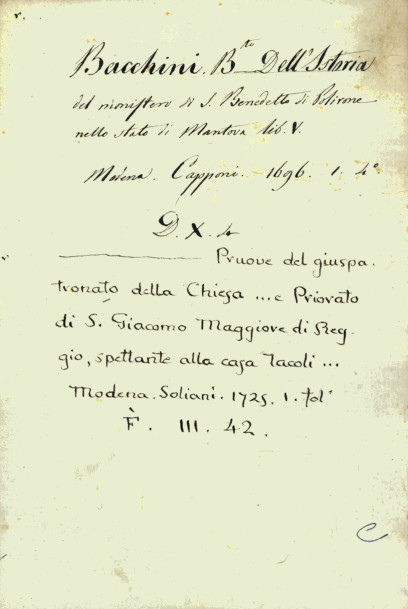 Bacchini. B.to Dell'Istoria
del monistero di S. Benedetto di Polirone
nello stato di Mantova lib. V.
Modena. Capponi. 1696. 1. 4°
D. X. 4
Pruove del giuspa.
tronato della Chiesa ... e Priorato
di S. Giacomo Maggiore di Reg.
gio, spettante alla casa Tacoli ...
Modena. Soliani. 1725. 1. fol°
F. III. 42.
C